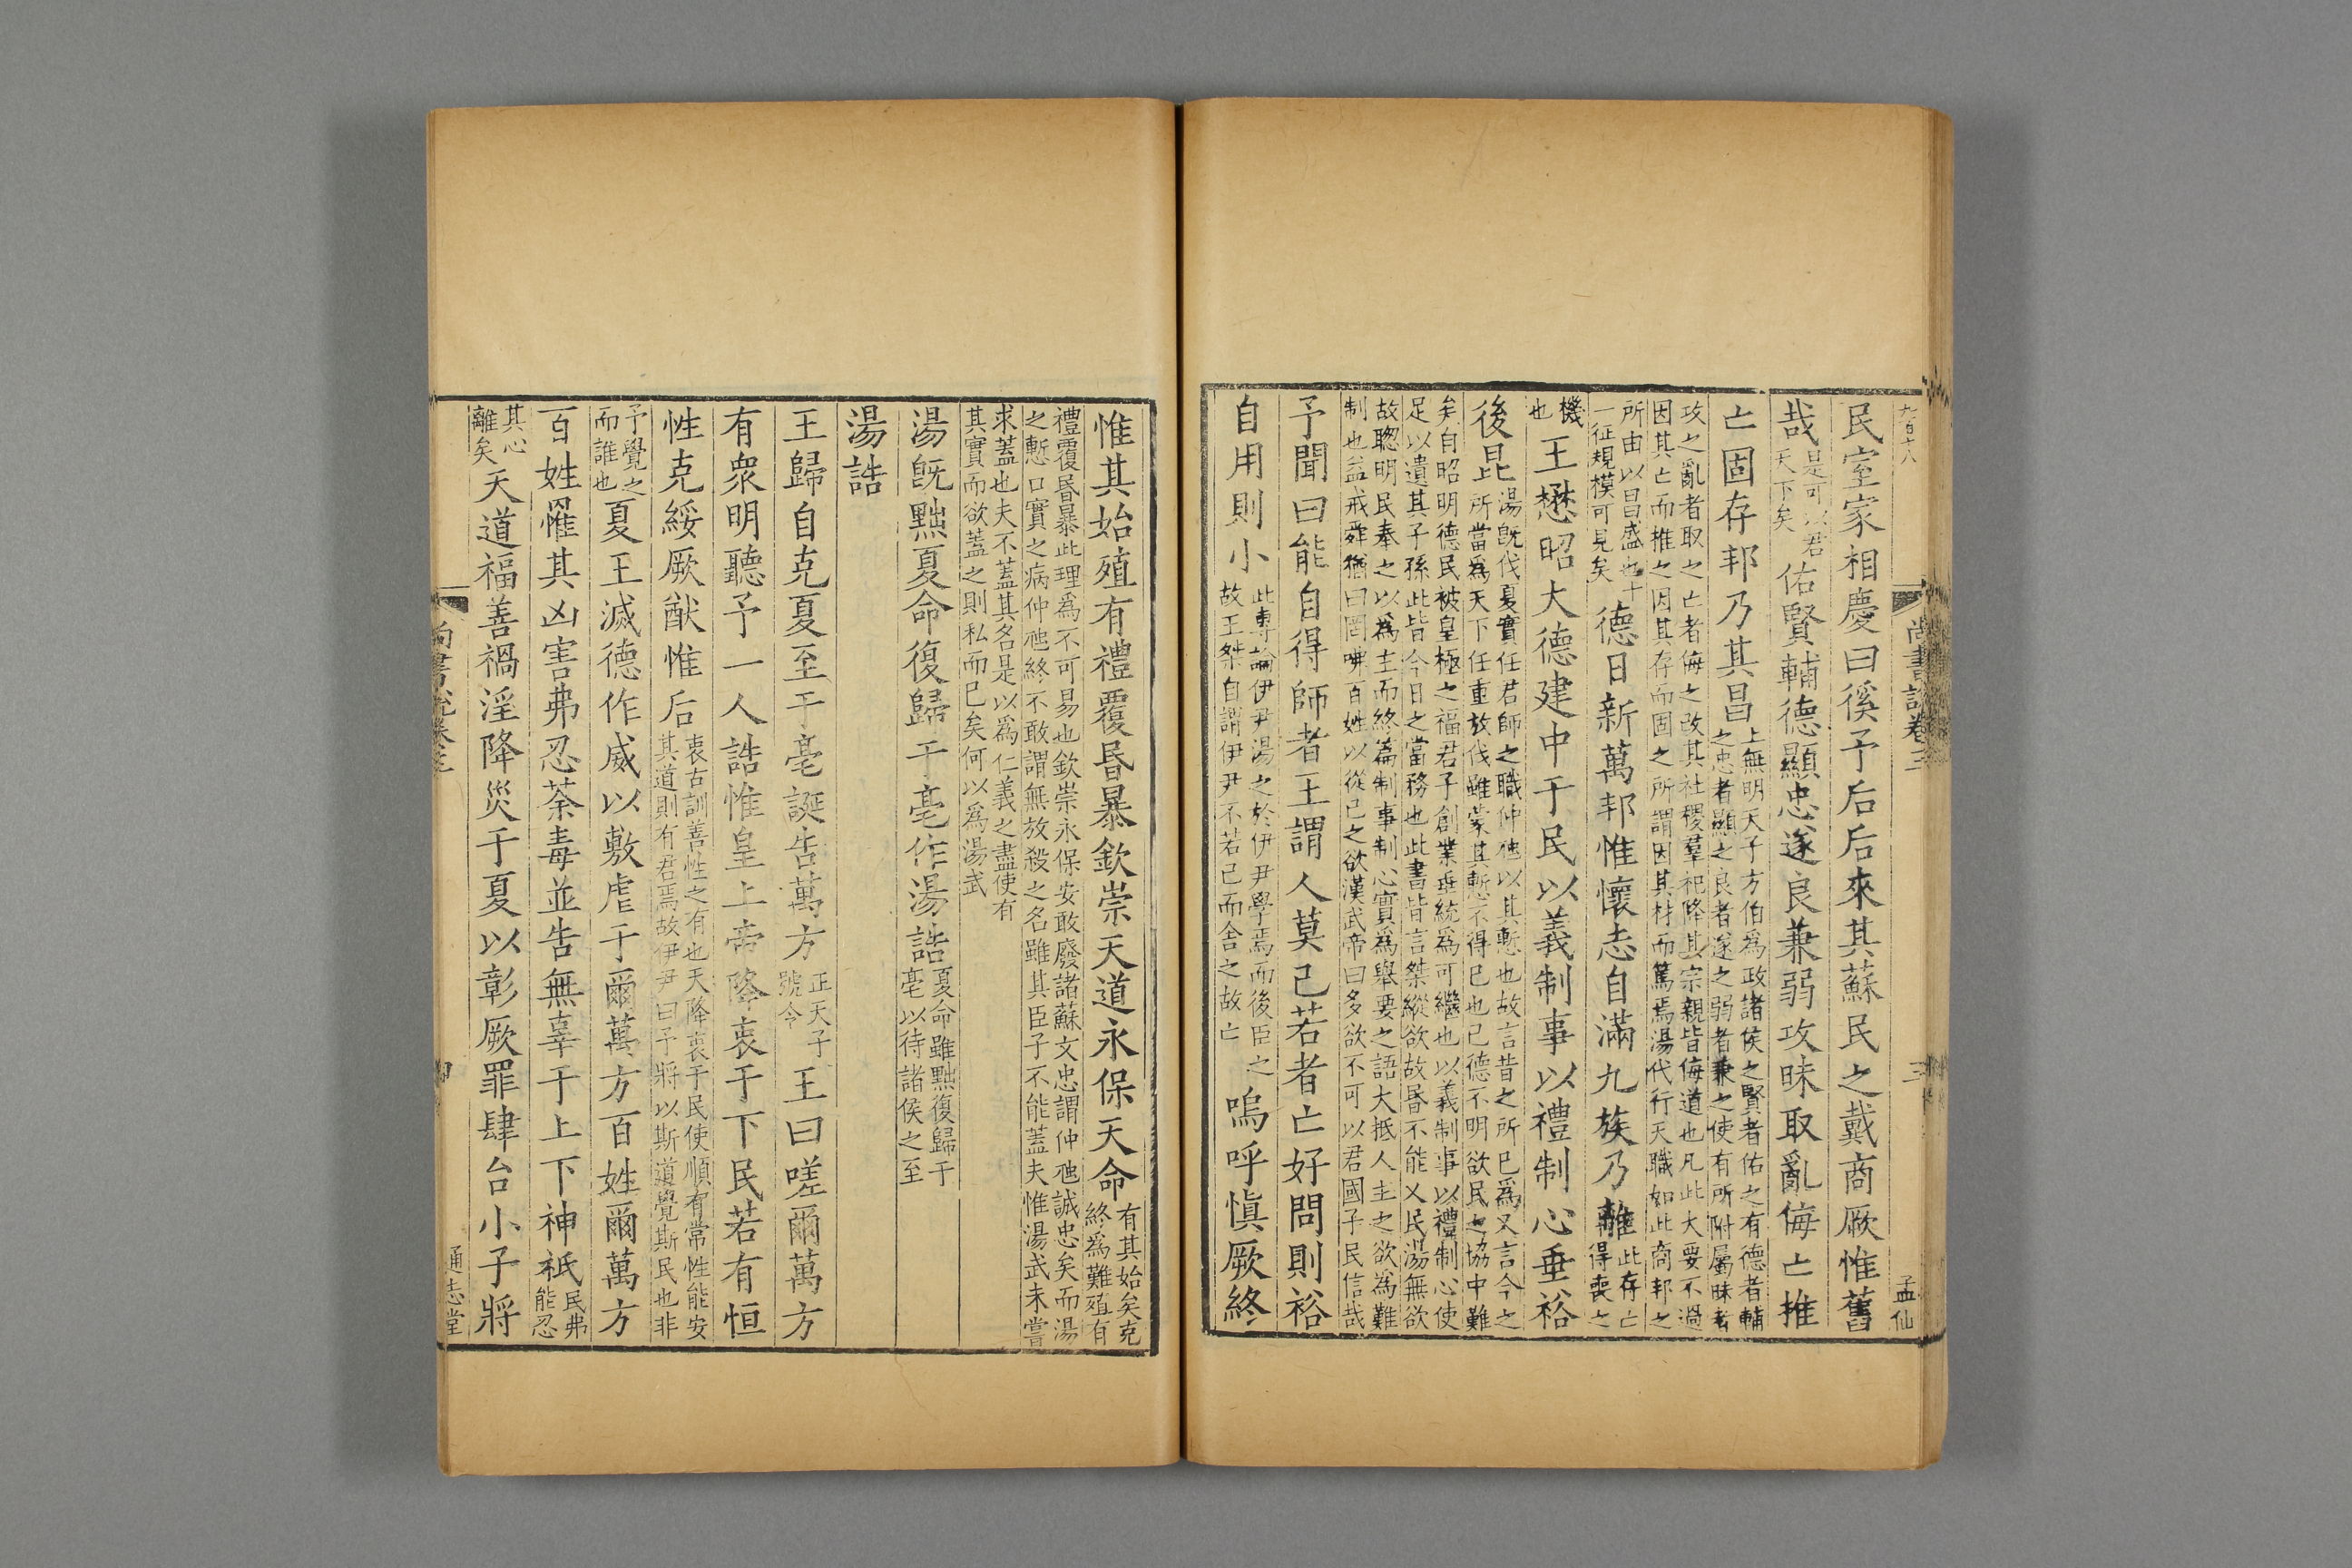 九百十八
尚書說卷三
三
孟仙
民室家相慶曰徯予后后來其蘇民之戴商厥惟舊
哉是可以君天下矣佑賢輔德顯忠遂良兼弱攻昧取亂侮亡推
亡固存邦乃其昌上無明天子方伯為政諸侯之賢者佑之有德者輔之忠者顯之良者遂之弱者兼之使有所附屬昧者
攻之亂者取之亡者侮之改其社稷羣祀降其宗親皆侮道也凡此大要不過因其亡而推之因其存而固之所謂因其材而篤焉湯代行天職如此商邦之
所由以昌盛也十一征規模可見矣德日新萬邦惟懷志自滿九族乃離此存亡得喪之
機也王懋昭大德建中于民以義制事以禮制心垂裕
後昆湯旣伐夏實任君師之職仲虺以其慙也故言昔之所巳為又言今之所當為天下任重放伐雖蒙其慙不得已也已德不明欲民之協中難
矣自昭明德民被皇極之福君子創業垂統為可繼也以義制事以禮制心使足以遺其子孫此皆今日之當務也此書皆言桀縱欲故昏不能乂民湯無欲
故聰明民奉之以為主而終篇制事制心實為舉要之語大抵人主之欲為難制也益戒舜猶曰罔咈百姓以從己之欲漢武帝曰多欲不可以君國子民信哉
予聞曰能自得師者王謂人莫己若者亡好問則裕
自用則小此專論伊尹湯之於伊尹學焉而後臣之故王桀自謂伊尹不若己而舍之故亡嗚呼愼厥終
惟其始殖有禮覆昬暴欽崇天道永保天命有其始矣克終為難殖有
禮覆昬暴此理為不可易也欽崇永保安敢廢諸蘇文忠謂仲虺誠忠矣而湯之慙口實之病仲虺終不敢謂無放殺之名雖其臣子不能蓋夫惟湯武未嘗
求蓋也夫不蓋其名是以為仁義之盡使有其實而欲蓋之則私而已矣何以為湯武
湯旣黜夏命復歸于亳作湯誥夏命雖黜復歸于亳以待諸侯之至
湯誥
王歸自克夏至于亳誕告萬方正天子號令王曰嗟爾萬方
有衆明聽予一人誥惟皇上帝降衷于下民若有恒
性克綏厥猷惟后衷古訓善性之有也天降衷于民使順有常性能安其道則有君焉故伊尹曰予將以斯道覺斯民也非
予覺之而誰也夏王滅德作威以敷虐于爾萬方百姓爾萬方
百姓罹其凶害弗忍荼毒並告無辜于上下神祇民弗能忍
其心離矣天道福善禍淫降災于夏以彰厥罪肆台小子將
尚書說卷三
四
通志堂